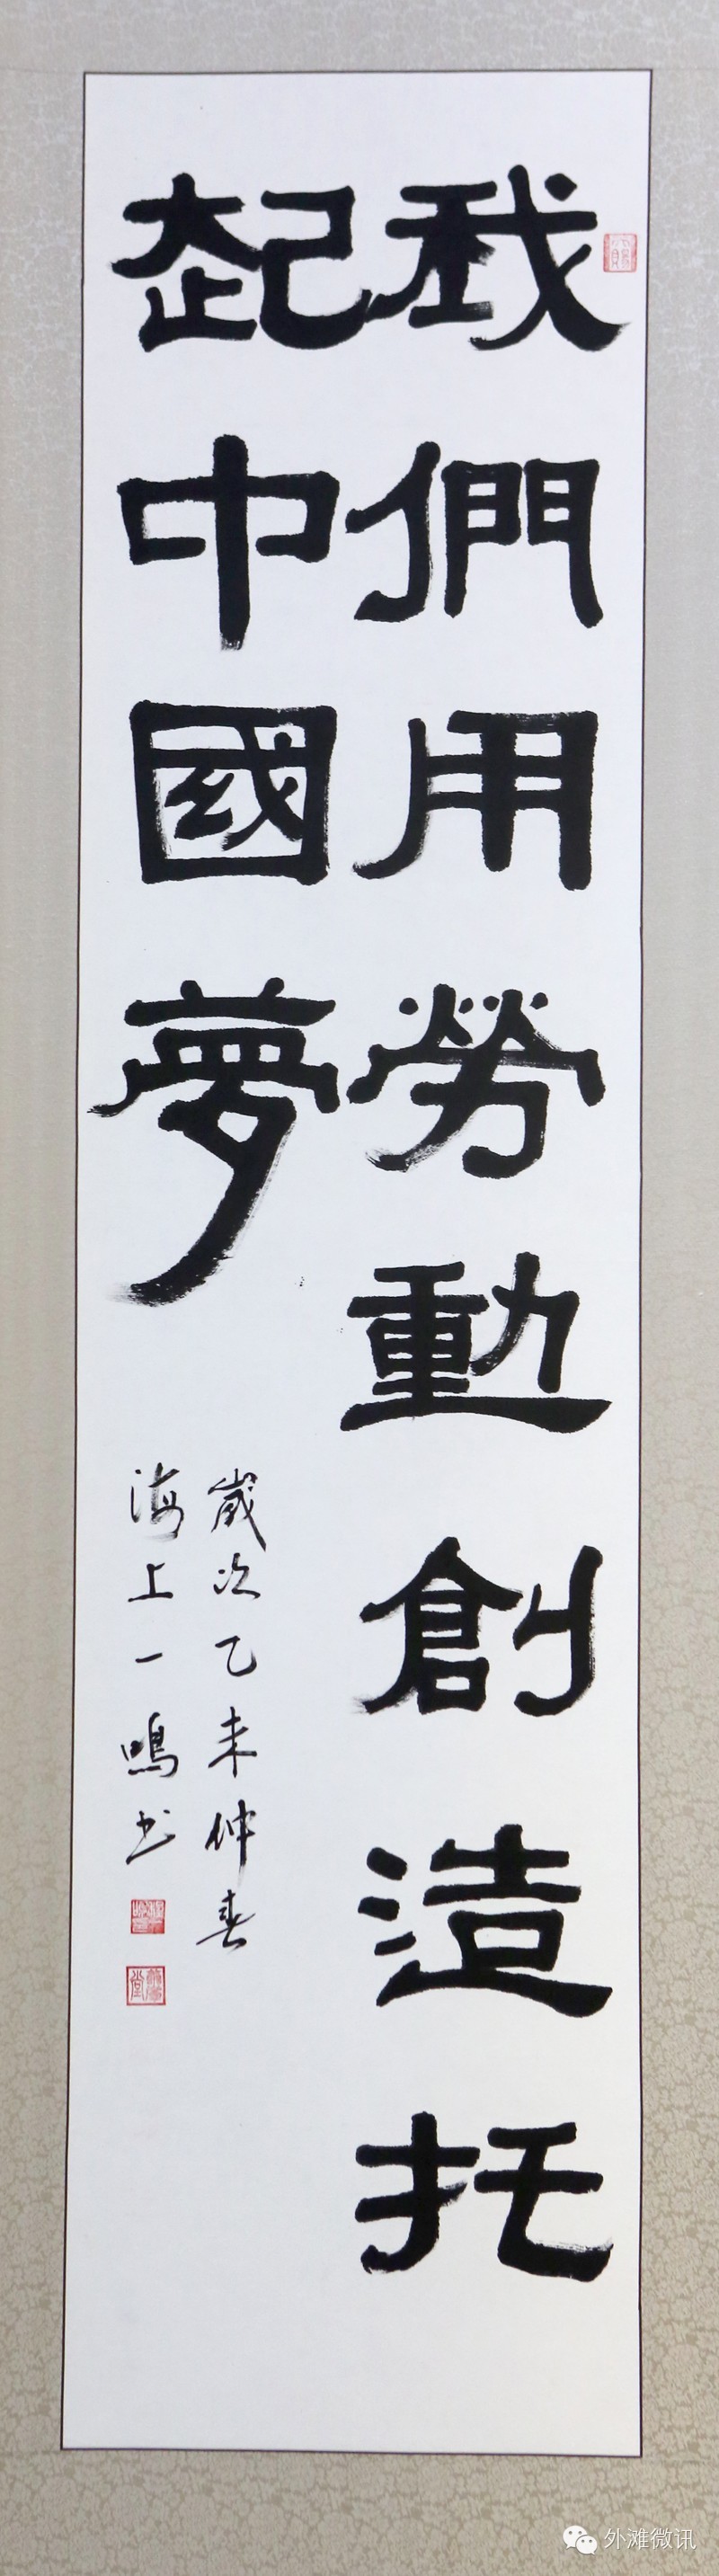 我們用勞動創造托
起中國夢
歲次乙未仲春
海上一鳴书
外滩微讯